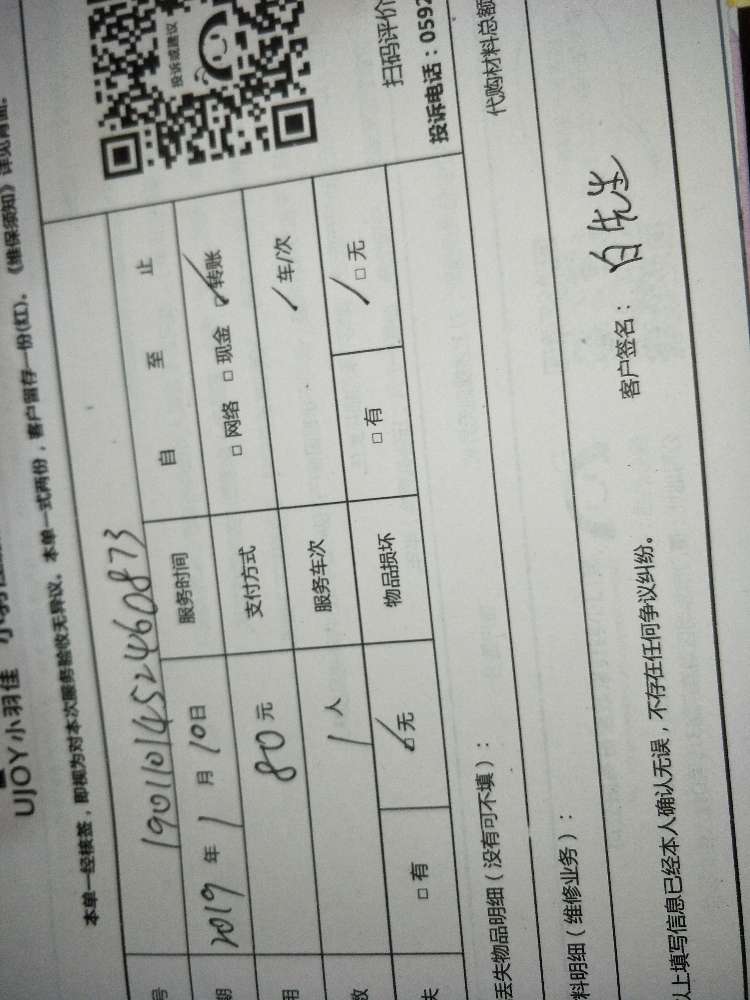 UJOY小羽佳
本单一经核签，即视为对本次服务验收无异议。本单一式两份，客户留存一份(红)。《维保须知》详见背面。
投诉或建议
扫码评价
投诉电话：0592
号 1901101452460873
期 2019年1月10日 服务时间 自 至 止
用 80元 支付方式 □网络 □现金 ☑转账
数 1人 服务车次 / 车/次
失 □有 ☑无 物品损坏 □有 / □无
丢失物品明细（没有可不填）： 代购材料总额
料明细（维修业务）：
以上填写信息已经本人确认无误，不存在任何争议纠纷。 客户签名：白先生